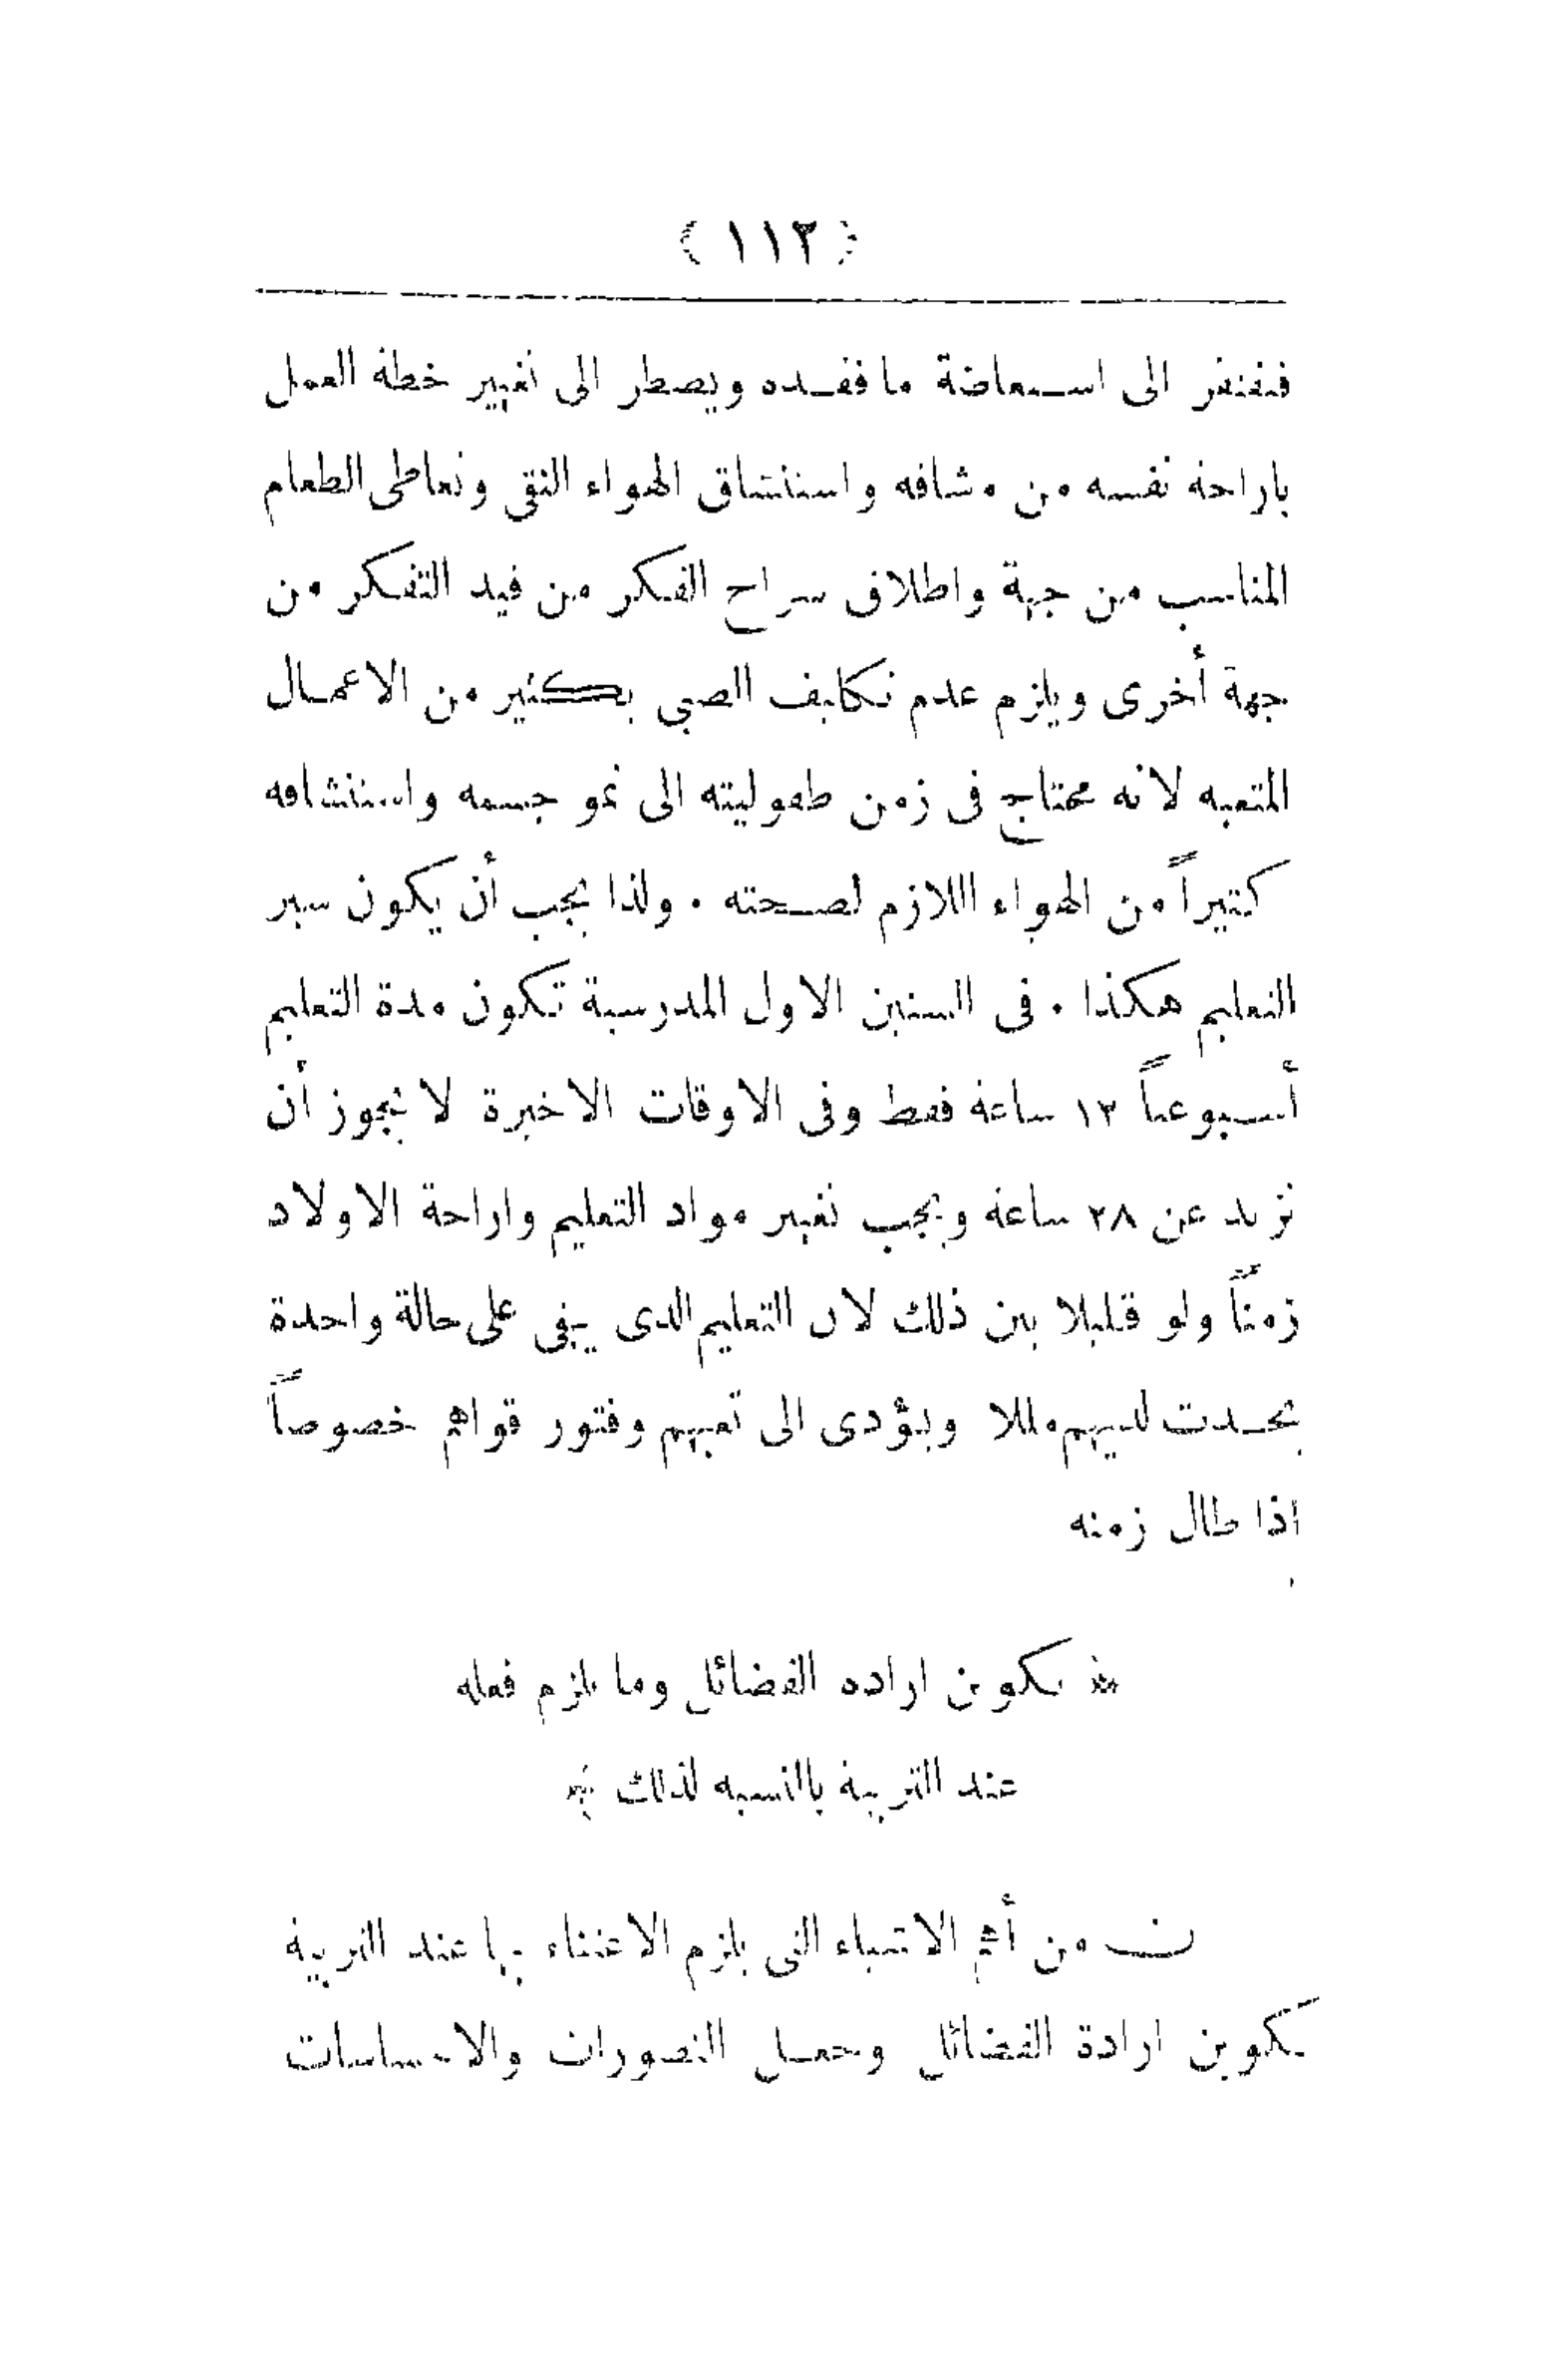 ﴿ ١١٢ ﴾
فتفتقر الى استعاضة ما فقده ويضطر الى تغيير خطة العمل
باراحة نفسه من مشاقه واستنشاق الهواء النقى وتعاطى الطعام
المناسب من جهة واطلاق سراح الفكر من قيد التفكر من
جهة أخرى ويلزم عدم تكليف الصبي بكثير من الاعمال
المتعبه لانه محتاج فى زمن طفوليته الى نمو جسمه واستنشاقه
كثيراً من الهواء اللازم لصحته . ولذا يجب أن يكون سير
التعليم هكذا . فى السنين الاول المدرسية تكون مدة التعليم
أسبوعياً ١٢ ساعة فقط وفى الاوقات الاخيرة لا يجوز أن
تزيد عن ٢٨ ساعة ويجب تغيير مواد التعليم واراحة الاولاد
زمناً ولو قليلا بين ذلك لان التعليم الذى يبقى على حالة واحدة
يحدث لديهم مللا ويؤدى الى تعبهم وفتور قواهم خصوصاً
اذا طال زمنه
﴿ تكوين اراده الفضائل وما يلزم فعله
عند التربية بالنسبه لذلك ﴾
من أهم الاشياء التى يلزم الاعتناء بها عند التربية
تكوين ارادة الفضائل وجعل التصورات والاحساسات